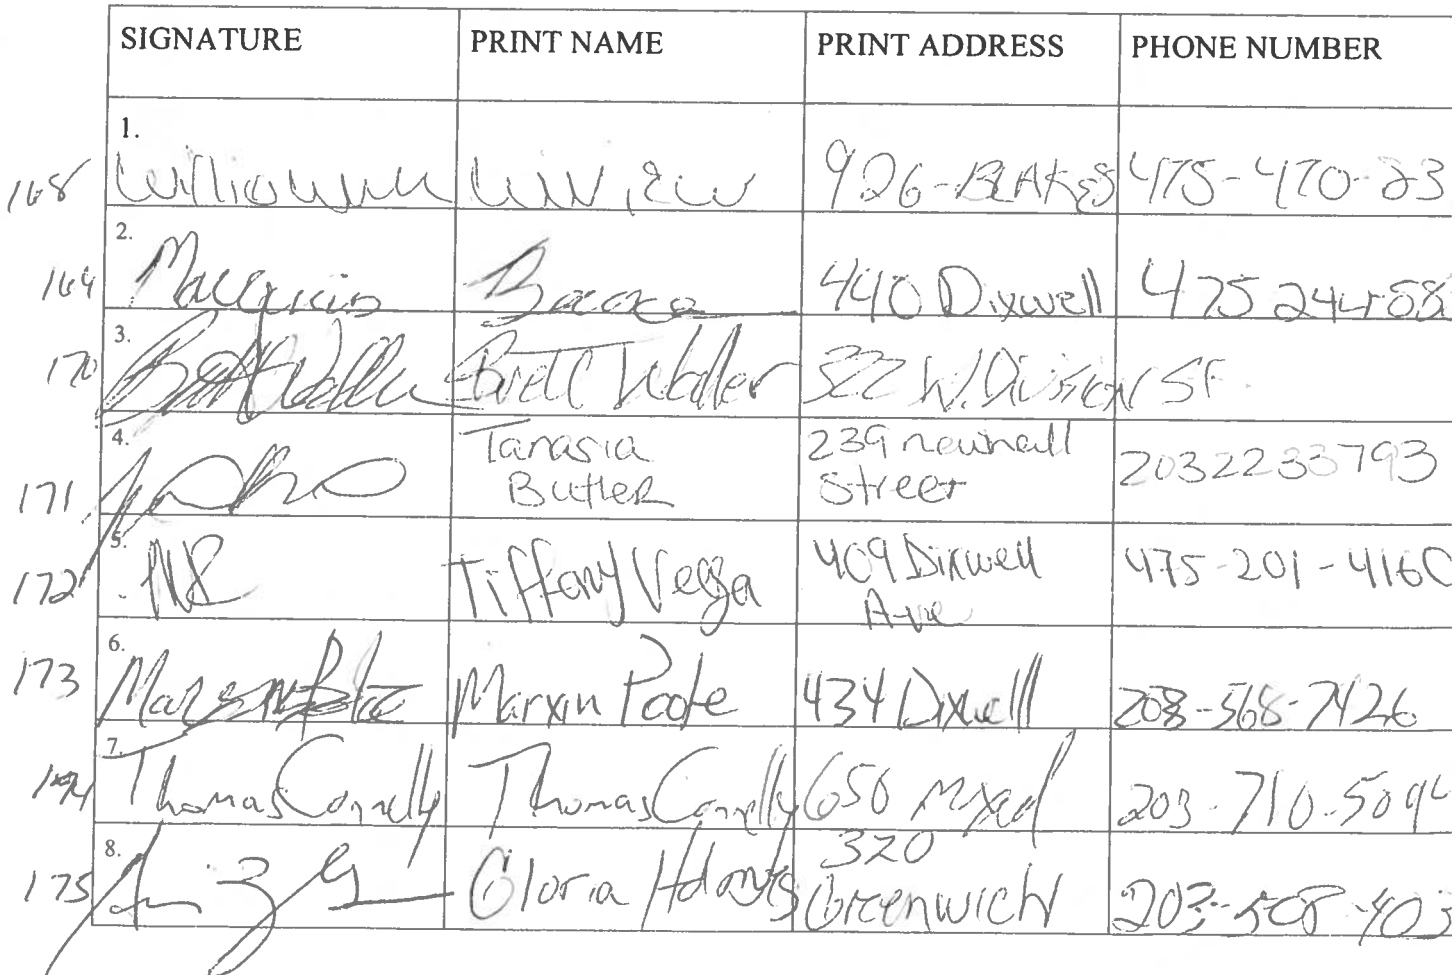 SIGNATURE PRINT NAME PRINT ADDRESS PHONE NUMBER
168 1. 926-BLAKES 475-470-23
169 2. 440 Dixwell 475 244-58
170 3. Brett Waller Brett Waller 322 W. Division St
171 4. Tanasia Butler 239 newhall Street 2032233793
172 5. Tiffany Vega 409 Dixwell Ave 475-201-4160
173 6. Marxin Poole 434 Dixwell 203-568-7426
174 7. Thomas Connelly Thomas Connelly 650 203-710-509
175 8. Gloria 320 Greenwich 203-508-403